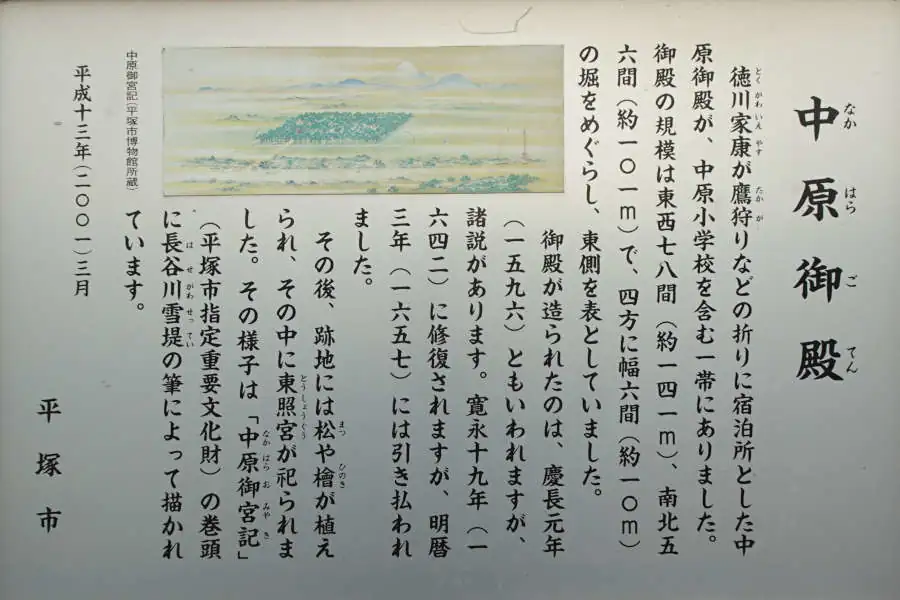 中原御殿
なか はら ご てん
徳川家康が鷹狩りなどの折りに宿泊所とした中
とく がわ いえ やす たか が
原御殿が、中原小学校を含む一帯にありました。
御殿の規模は東西七八間（約一四一ｍ）、南北五
六間（約一〇一ｍ）で、四方に幅六間（約一〇ｍ）
の堀をめぐらし、東側を表としていました。
御殿が造られたのは、慶長元年
（一五九六）ともいわれますが、
諸説があります。寛永十九年（一
六四二）に修復されますが、明暦
三年（一六五七）には引き払われ
ました。
その後、跡地には松や檜が植え
まつ ひのき
られ、その中に東照宮が祀られま
とうしょうぐう
した。その様子は「中原御宮記」
なか はら お みや き
（平塚市指定重要文化財）の巻頭
に長谷川雪堤の筆によって描かれ
は せ がわ せっ てい
ています。
中原御宮記（平塚市博物館所蔵）
平成十三年（二〇〇一）三月
平塚市